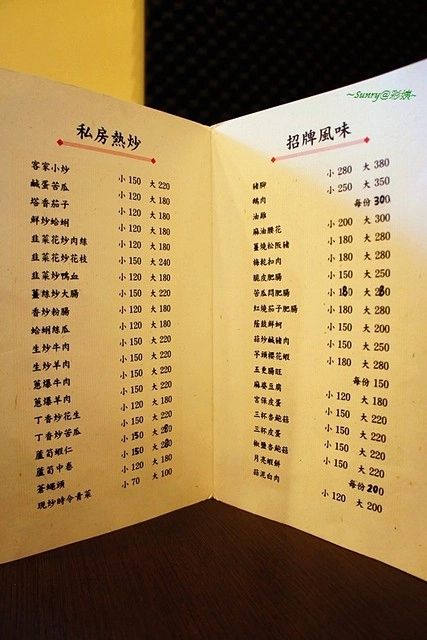 ~Sunry@彩憶~
私房熱炒
客家小炒 小 150 大 220
鹹蛋苦瓜 小 120 大 180
塔香茄子 小 120 大 180
鮮炒蛤蜊 小 120 大 180
韭菜花炒肉絲 小 120 大 180
韭菜花炒花枝 小 150 大 240
韭菜炒鴨血 小 120 大 180
薑絲炒大腸 小 150 大 220
香炒粉腸 小 120 大 180
蛤蜊絲瓜 小 120 大 180
生炒牛肉 小 150 大 220
生炒羊肉 小 150 大 220
蔥爆牛肉 小 150 大 220
蔥爆羊肉 小 150 大 220
丁香炒花生 小 120 大 180
丁香炒苦瓜 小 150 大 220
蘆筍蝦仁 小 150 大
蘆筍中卷 小 150 大
蒼蠅頭 小 120 大 180
現炒時令青菜 小 70 大 100
招牌風味
豬腳 小 280 大 380
鵝肉 小 250 大 350
油雞 每份 300
麻油腰花 小 200 大 300
薑燒松阪豬 小 180 大 280
梅乾扣肉 小 180 大 280
脆皮肥腸 小 150 大 250
苦瓜悶肥腸 小 180 大 280
紅燒茄子肥腸 小 180 大 280
蔭鼓鮮蚵 小 150 大 200
蒜炒鹹豬肉 小 150 大 250
芋頭櫻花蝦 小 180 大 280
五更腸旺 每份 150
麻婆豆腐 小 120 大 180
宮保皮蛋 小 150 大 220
三杯杏鮑菇 小 150 大 220
三杯皮蛋 小 150 大 220
椒鹽杏鮑菇 小 150 大 220
月亮蝦餅 每份 200
蒜泥白肉 小 120 大 200